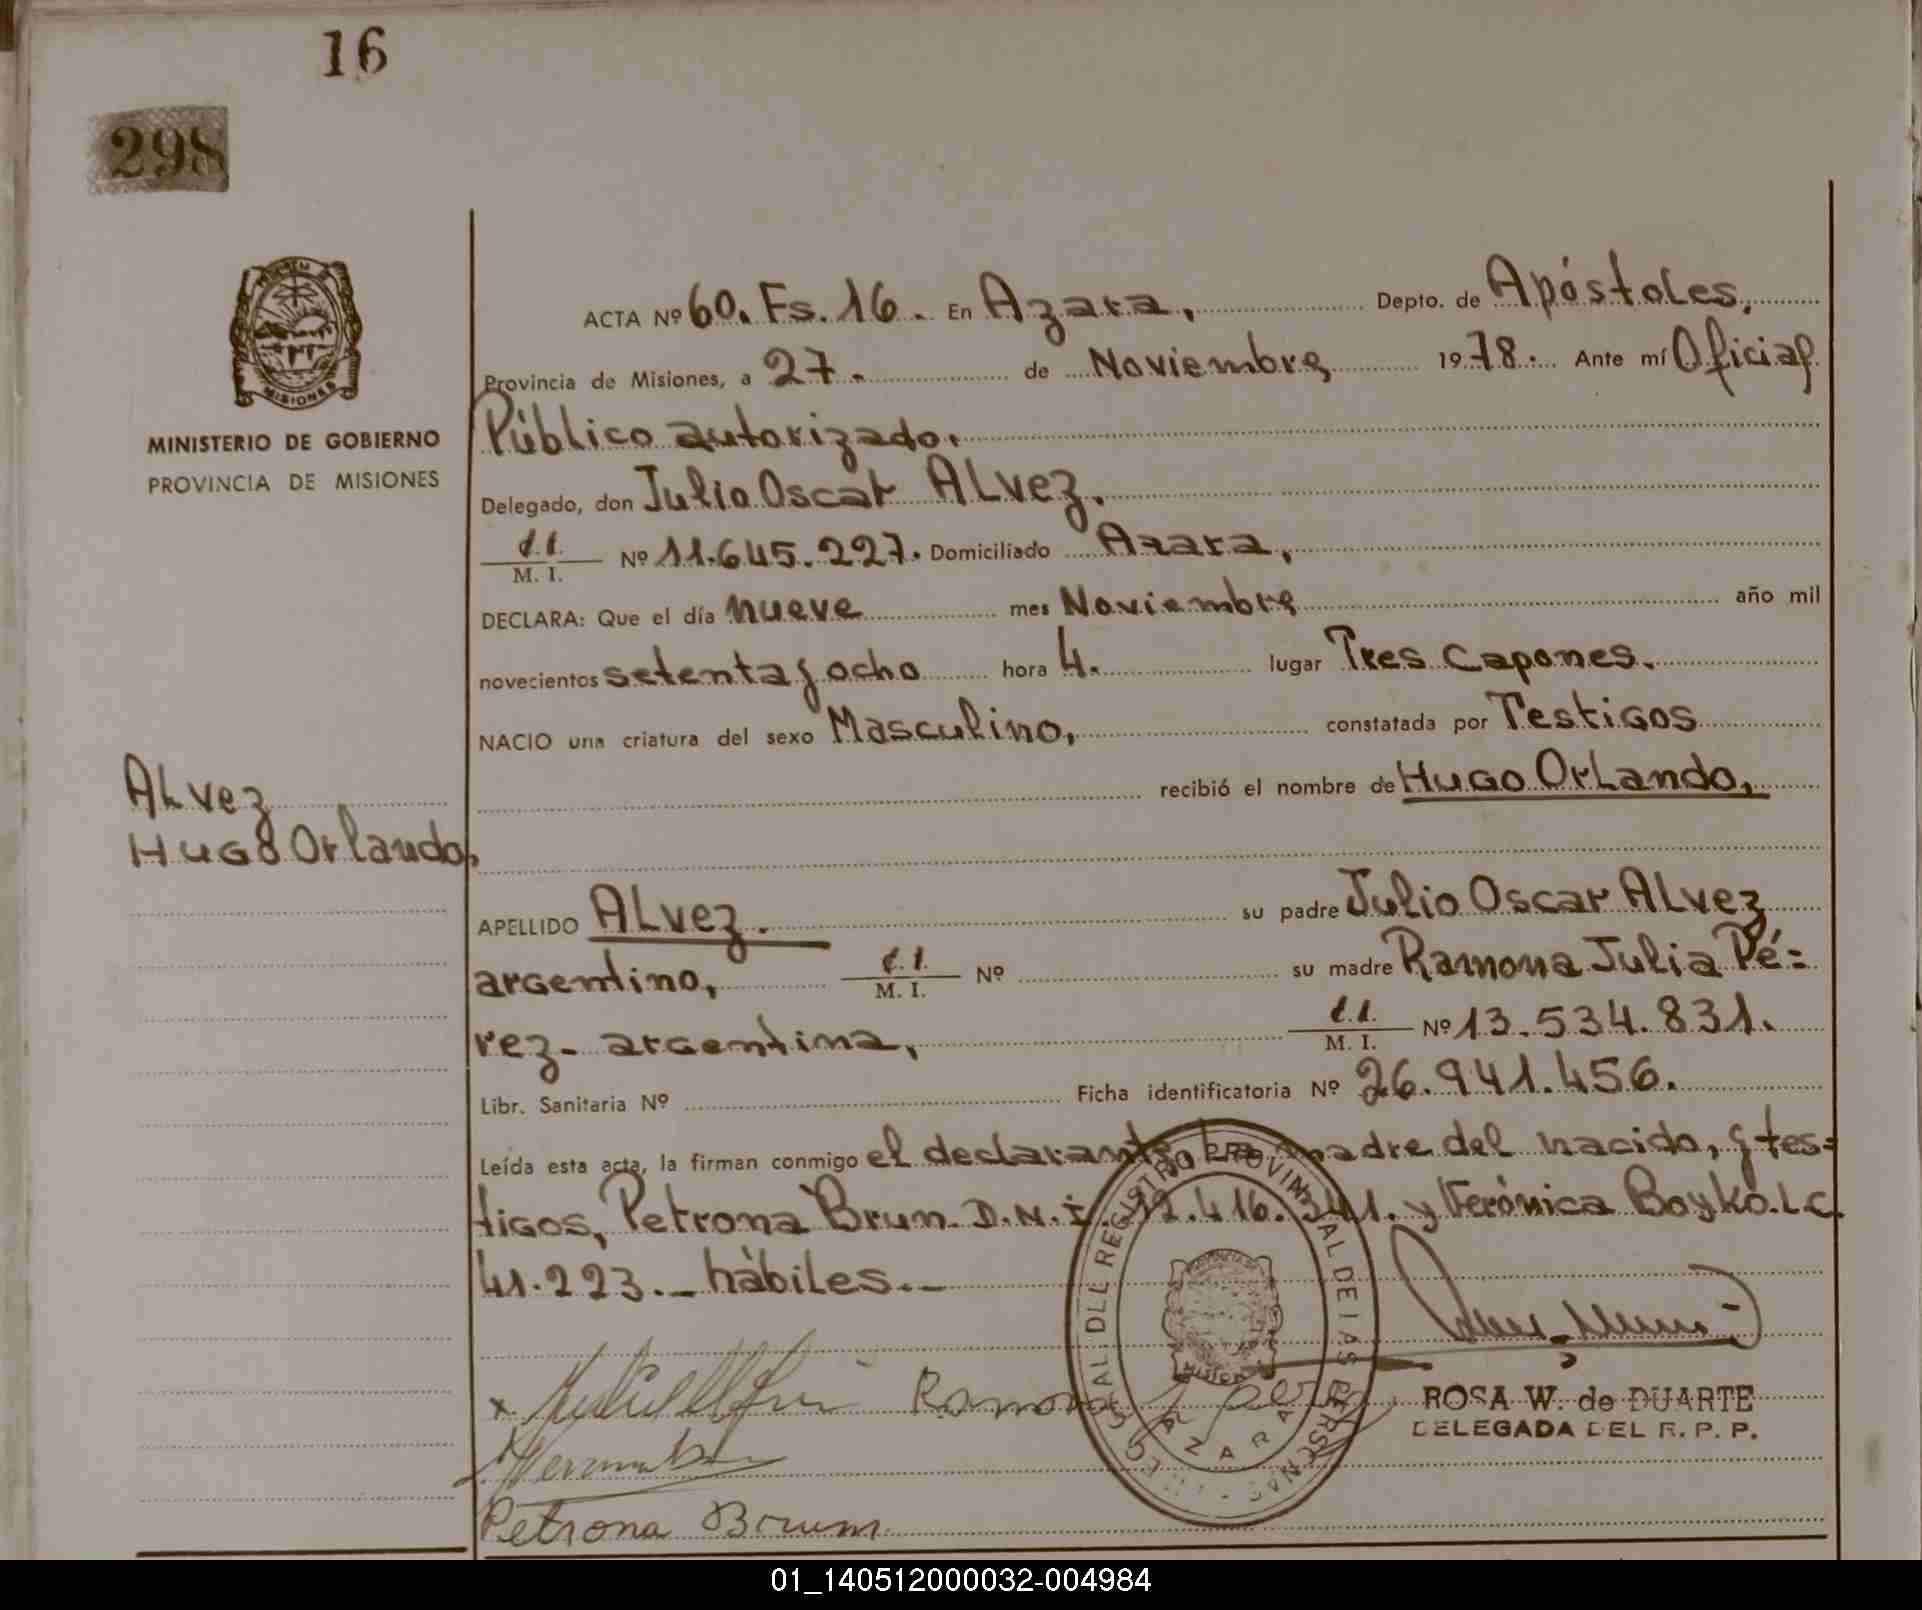 16
298
MISIONES
MINISTERIO DE GOBIERNO
PROVINCIA DE MISIONES
Alvez
Hugo Orlando,
ACTA Nº 60. Fs. 16. En Azara, Depto. de Apóstoles,
Provincia de Misiones, a 27. de Noviembre 1978. Ante mí Oficial
Público autorizado.
Delegado, don Julio Oscar Alvez.
M. I. Nº 11.645.227. Domiciliado Azara,
DECLARA: Que el día nueve mes Noviembre año mil
novecientos setenta y ocho hora 4. lugar Tres Capones.
NACIO una criatura del sexo Masculino, constatada por Testigos
recibió el nombre de Hugo Orlando,
APELLIDO Alvez. su padre Julio Oscar Alvez
argentino, C.I. M. I. Nº su madre Ramona Julia Pé=
rez- argentina, C.I. M. I. Nº 13.534.831.
Libr. Sanitaria Nº Ficha identificatoria Nº 26.941.456.
Leída esta acta, la firman conmigo el declarante, la madre del nacido, y tes=
tigos, Petrona Brun. D.N.I. 12.416.341. y Verónica Boyko. L.C.
41.223._ hábiles._
Ramona
AZARA
ROSA W. de DUARTE
DELEGADA DEL R. P. P.
Petrona Brum
01_140512000032-004984